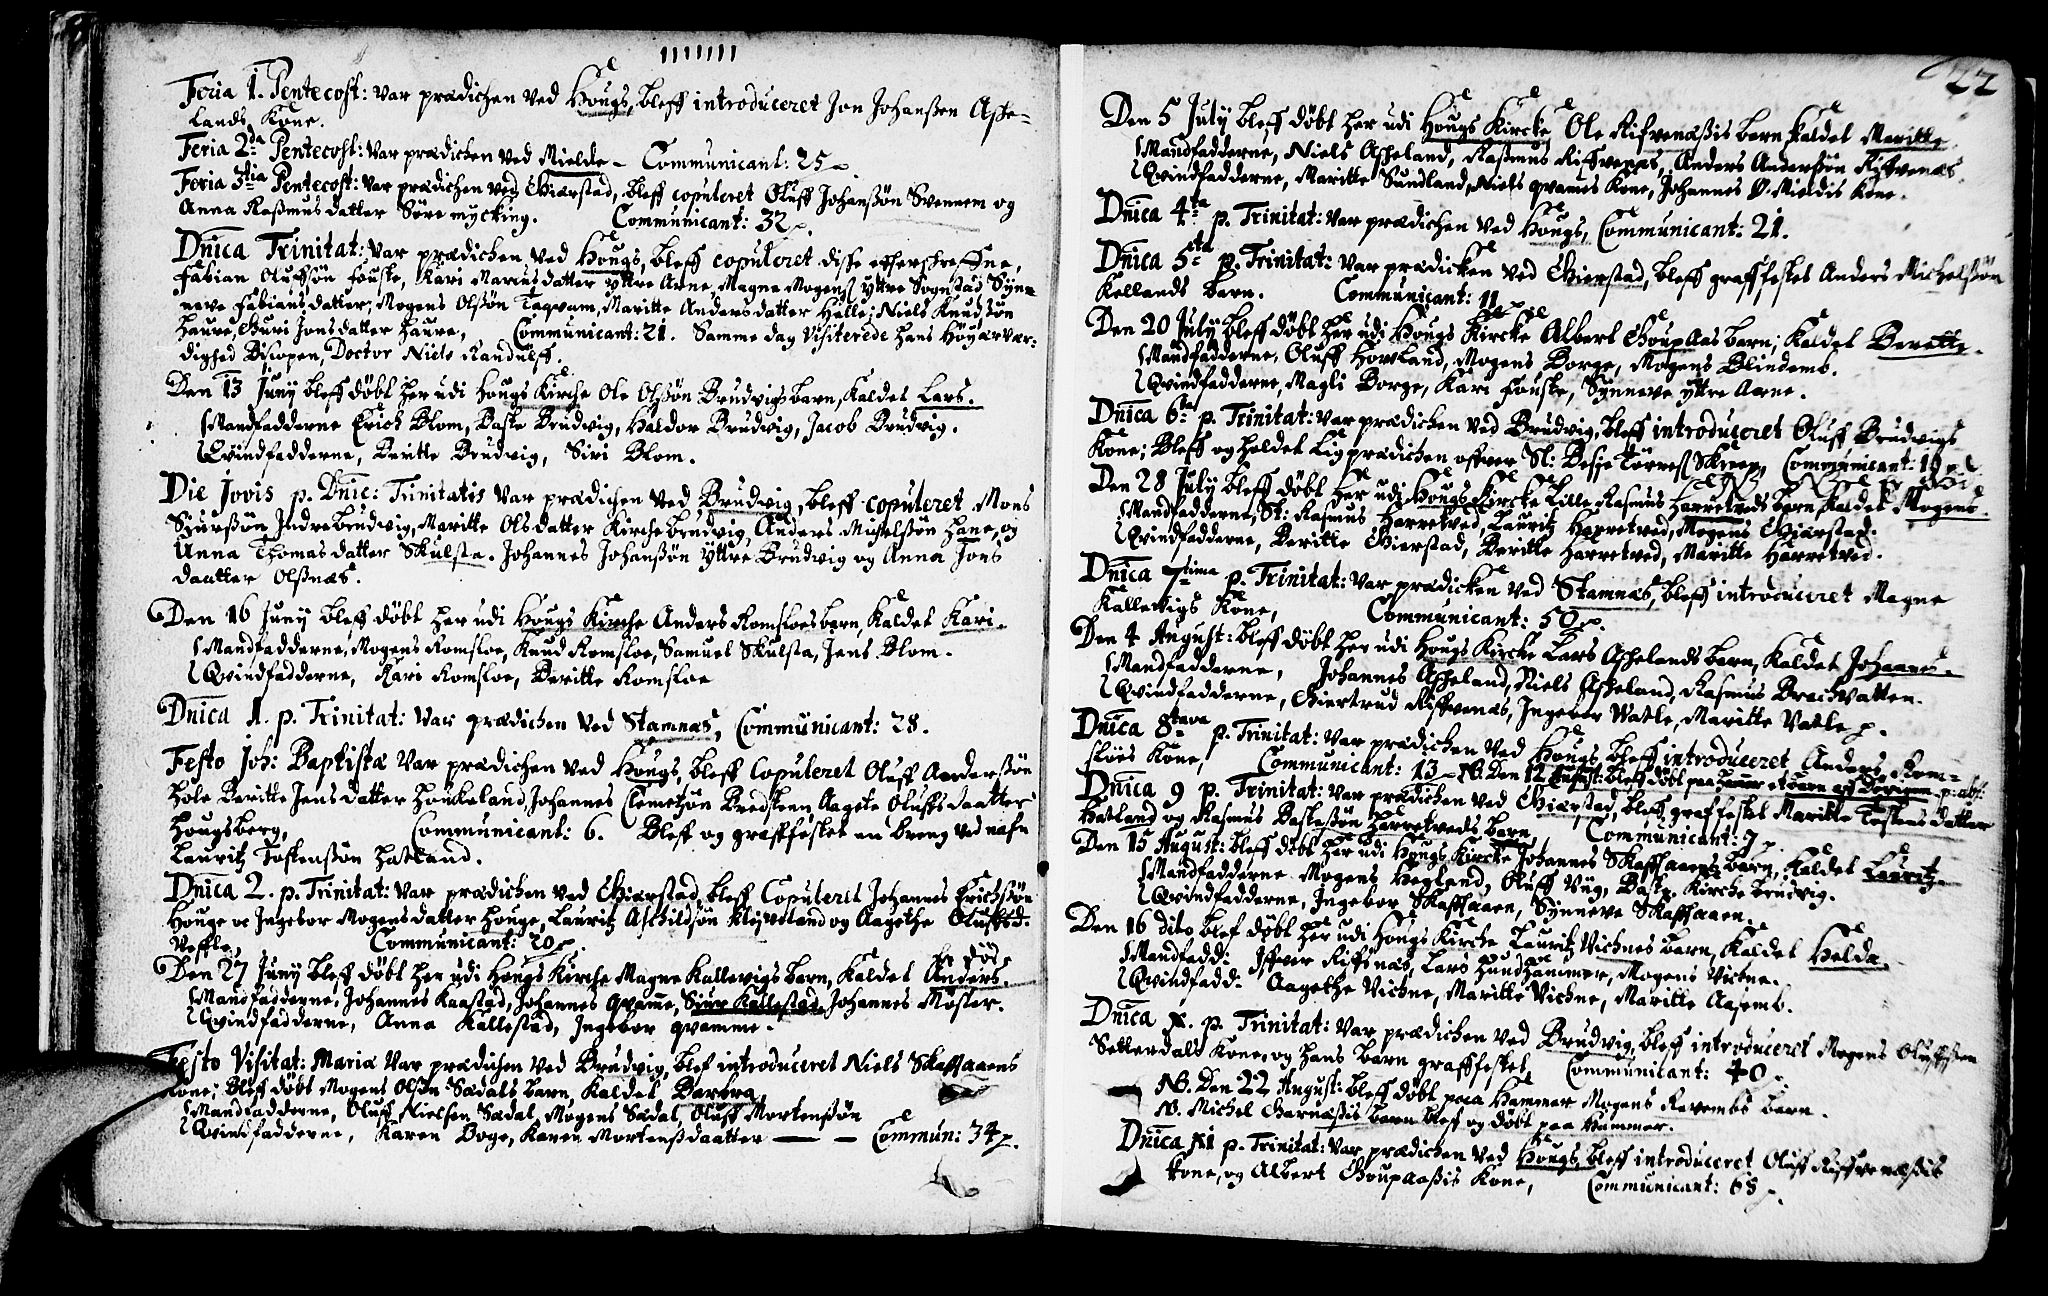 Feria 1. Pentecost: var prædichen ved Hougs, bleff introduceret Jon Johanßen Aſhe-
lands Kone.
Feria 2da Pentecost: var prædicken ved Mielde – Communicant: 25
Feria 3tia Pentecost: var prædichen ved Gierstad, bleff copuleret Oluff Johanßøn Svennem og
Anna Raßmusdatter Søre mycking. Communicant: 32
Dnica Trinitat: var prædichen ved Hougs, bleff copuleret disse effterschreffne,
Fabian Oluffsøn Fouske, Kari Mariusdatter yttre Arne, Magne Mogens yttre Sognstad Syn-
neve Fabiansdatter, Mogens Olßøn Taqvam, Maritte Andersdatter Helle, Niels Knudsøn
Haure, Guri Jonsdatter Haure, Communicant: 21. Samme dag visiterede hans Høyærvær-
dighed Biscopen, Doctor Niels Randulff.
Den 13 Juny bleff døbt her udi Hougs Kirche Ole Olßøn Brudvigs barn, kaldet Lars.
Mandfadderne Erich Blom, Baste Brudvig, Haldor Brudvig, Jacob Brudvig.
Qvindfadderne, Beritte Brudvig, Siri Blom.
Die Jovis p. Dnic: Trinitatis var prædichen ved Brudvig, bleff copuleret Mons
Siurßøn Indrebrudvig, Maritte Olsdatter Kirchebrudvig, Anders Michelsøn Hane, og
Anna Thomasdatter Skulsta. Johannes Johanßøn yttre Brudvig og Anna Jons
daatter Olßnæs.
Den 16 Juny bleff døbt her udi Hougs Kirche Anders Romsloes barn, kaldet Kari.
Mandfadderne, Mogens Romsloe, Knud Romsloe, Samuel Skulsta, Jens Blom.
Qvindfadderne, Kari Romsloe, Beritte Romsloe
Dnica 1. p. Trinitat: var prædichen ved Stamnæs, Communicant: 28.
Festo Joh: Baptistæ var prædichen ved Hougs, bleff copuleret Oluff Anderßøn
Hole Beritte Jensdatter Houkeland, Johannes Clemetsøn Bredsteen Aagete Oluffsdaatter
Hougsberg, Communicant: 6. Bleff og graffæstet en dreng ved nafn
Lauritz Tostenßøn Hatland.
Dnica 2. p. Trinitat: var prædichen ved Gierstad, bleff Copuleret Johannes Erichsøn
Houge oc Ingebor Mogensdatter Houge, Lauritz Aschildsøn og Aagethe Oluffsd:
Veffle, Communicant: 20
er død
Den 27 Juny bleff døbt her udi Hougs Kirche Magne Kallevigs barn, kaldet Anders.
Mandfadderne, Johannes Kaastad, Johannes Qvamme, Siur Kallestad, Johannes Moster.
Qvindfadderne, Anna Kallestad, Ingebor Qvamme.
Festo Visitat: Mariæ var prædichen ved Brudvig, blef introduceret Niels Skaftaaens
Kone; Bleff døbt Mogens Olßøn Sædals barn, kaldet Barbra,
Mandfadderne, Oluff Nielsen Sædal, Mogens Sædal, Oluff Mortenßøn
Qvindfadderne, Karen Boge, Karen Mortensdaatter — — Commun: 34
22
Den 5 July bleff døbt her udi Hougs Kircke Ole Rifvenæssis barn kaldet Maritte.
Mandfadderne, Niels Asheland, Raßmus Riffvenæs, Anders Andersøn Rifvenæs.
Qvindfadderne, Maritte Sundland, Niels Qvames Kone, Johannes Ø. Mieldis Kone.
Dnica 4ta p. Trinitat: var prædichen ved Hougs, Communicant: 21.
Dnica 5ta p. Trinitat: var prædicken ved Gierstad, bleff graffæstet Anders Michelßøn
Kellands barn. Communicant: 11
Den 20 July bleff døbt her udi Hougs Kircke Albert Goupaas barn; kaldet Beritte.
Mandfadderne, Oluff Hovland, Mogens Borge, Mogens Blindemb.
Qvindfadderne, Magli Borge, Kari Fouske, Synneve yttre Aarne.
Dnica 6ta p. Trinitat: var prædichen ved Brudvig, bleff introduceret Oluff Brudvigs
Kone; bleff og holdet Ligprædichen offver Sl: Besse Tørres Skreen, Communicant: 19
Den 28 July bleff døbt her udi Hougs Kircke Lille Rasmus Harretveds barn, kaldet Mogens.
Mandfadderne, St: Rasmus Harretved, Lauritz Harretved, Mogens Gierstad.
Qvindfadderne, Beritte Gierstad, Beritte Harretved, Maritte Harretved.
Dnica 7tima p. Trinitat: var prædicken ved Stamnæs, bleff introduceret Magne
Kallevigs Kone, Communicant: 50
Den 4 August: bleff døbt her udi Hougs Kircke Lars Ashelands barn, kaldet Johanes.
Mandfadderne, Johannes Asheland, Niels Asheland, Rasmus Brechvatten.
Qvindfadderne, Giertrud Riffvenæs, Ingebor Vatle, Maritte Vatle
Dnica 8tava p. Trinitat: var prædichen ved Hougs, bleff introduceret Anders Rom-
sløis Kone, Communicant: 13 – NB. Den 12 August: bleff døbt paa Hammer et barn
Dnica 9 p. Trinitat: var prædichen ved Gierstad, bleff graffæstet Maritte Tostensdatter
Hatland og Rasmus Bastesøn Harretveds barn, Communicant: 7
Den 15 August: bleff døbt her udi Hougs Kircke Johannes Skaftaaens barn, kaldet Lauritz.
Mandfadderne Mogens Hegland, Oluff Vüg, Baste Kirche brudvig.
Qvindfadderne, Ingebor Skaftaaen, Synneve Skaftaaen.
Den 16 dito blef døbt her udi Hougs Kirche Lauritz Vichnes barn, kaldet Helda.
Mandfadd: Iffver Riffnæs, Lars Hundhammer, Mogens Vichne.
Qvindfadd. Aagethe Vichne, Maritte Vichne, Maritte Aasemb.
Dnica x. p. Trinitat: var prædichen ved Brudvig, bleff introduceret Mogens Oluffßøn
Settendals Kone, og hans barn graffæstet, Communicant: 40
NB. Den 22 August: bleff døbt paa Hammer Mogens Ravembs barn.
NB. Michel Garnæssis barn bleff og døbt paa Hammer.
Dnica xi p. Trinitat: var prædichen ved Hougs, bleff introduceret Oluff Riffvenæssis
Kone, og Albert Goupaassis Kone, Communicant: 68